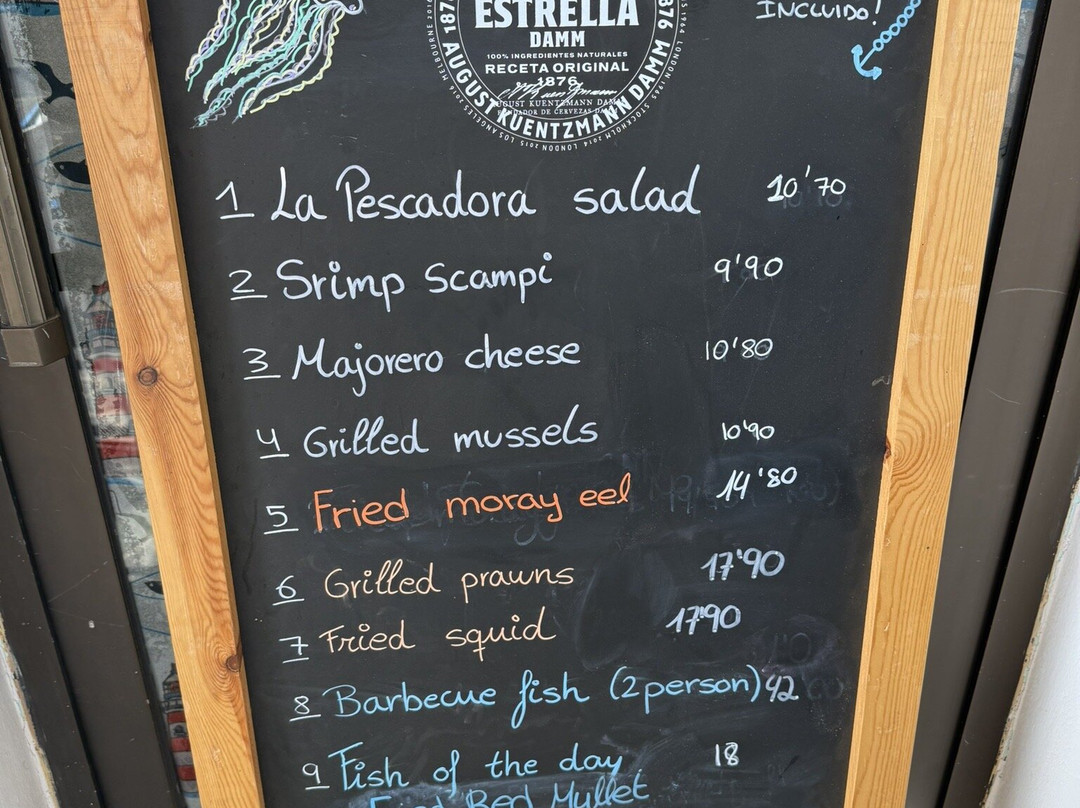 INCLUIDO!
ESTRELLA
DAMM
100% INGREDIENTES NATURALES
RECETA ORIGINAL
1876
AUGUST KUENTZMANN DAMM
1 La Pescadora salad 10'70
2 Srimp scampi 9'90
3 Majorero cheese 10'80
4 Grilled mussels 10'90
5 Fried moray eel 14'80
6 Grilled prawns 17'90
7 Fried squid 17'90
8 Barbecue fish (2person) 42
9 Fish of the day 18
Fried Red Mullet